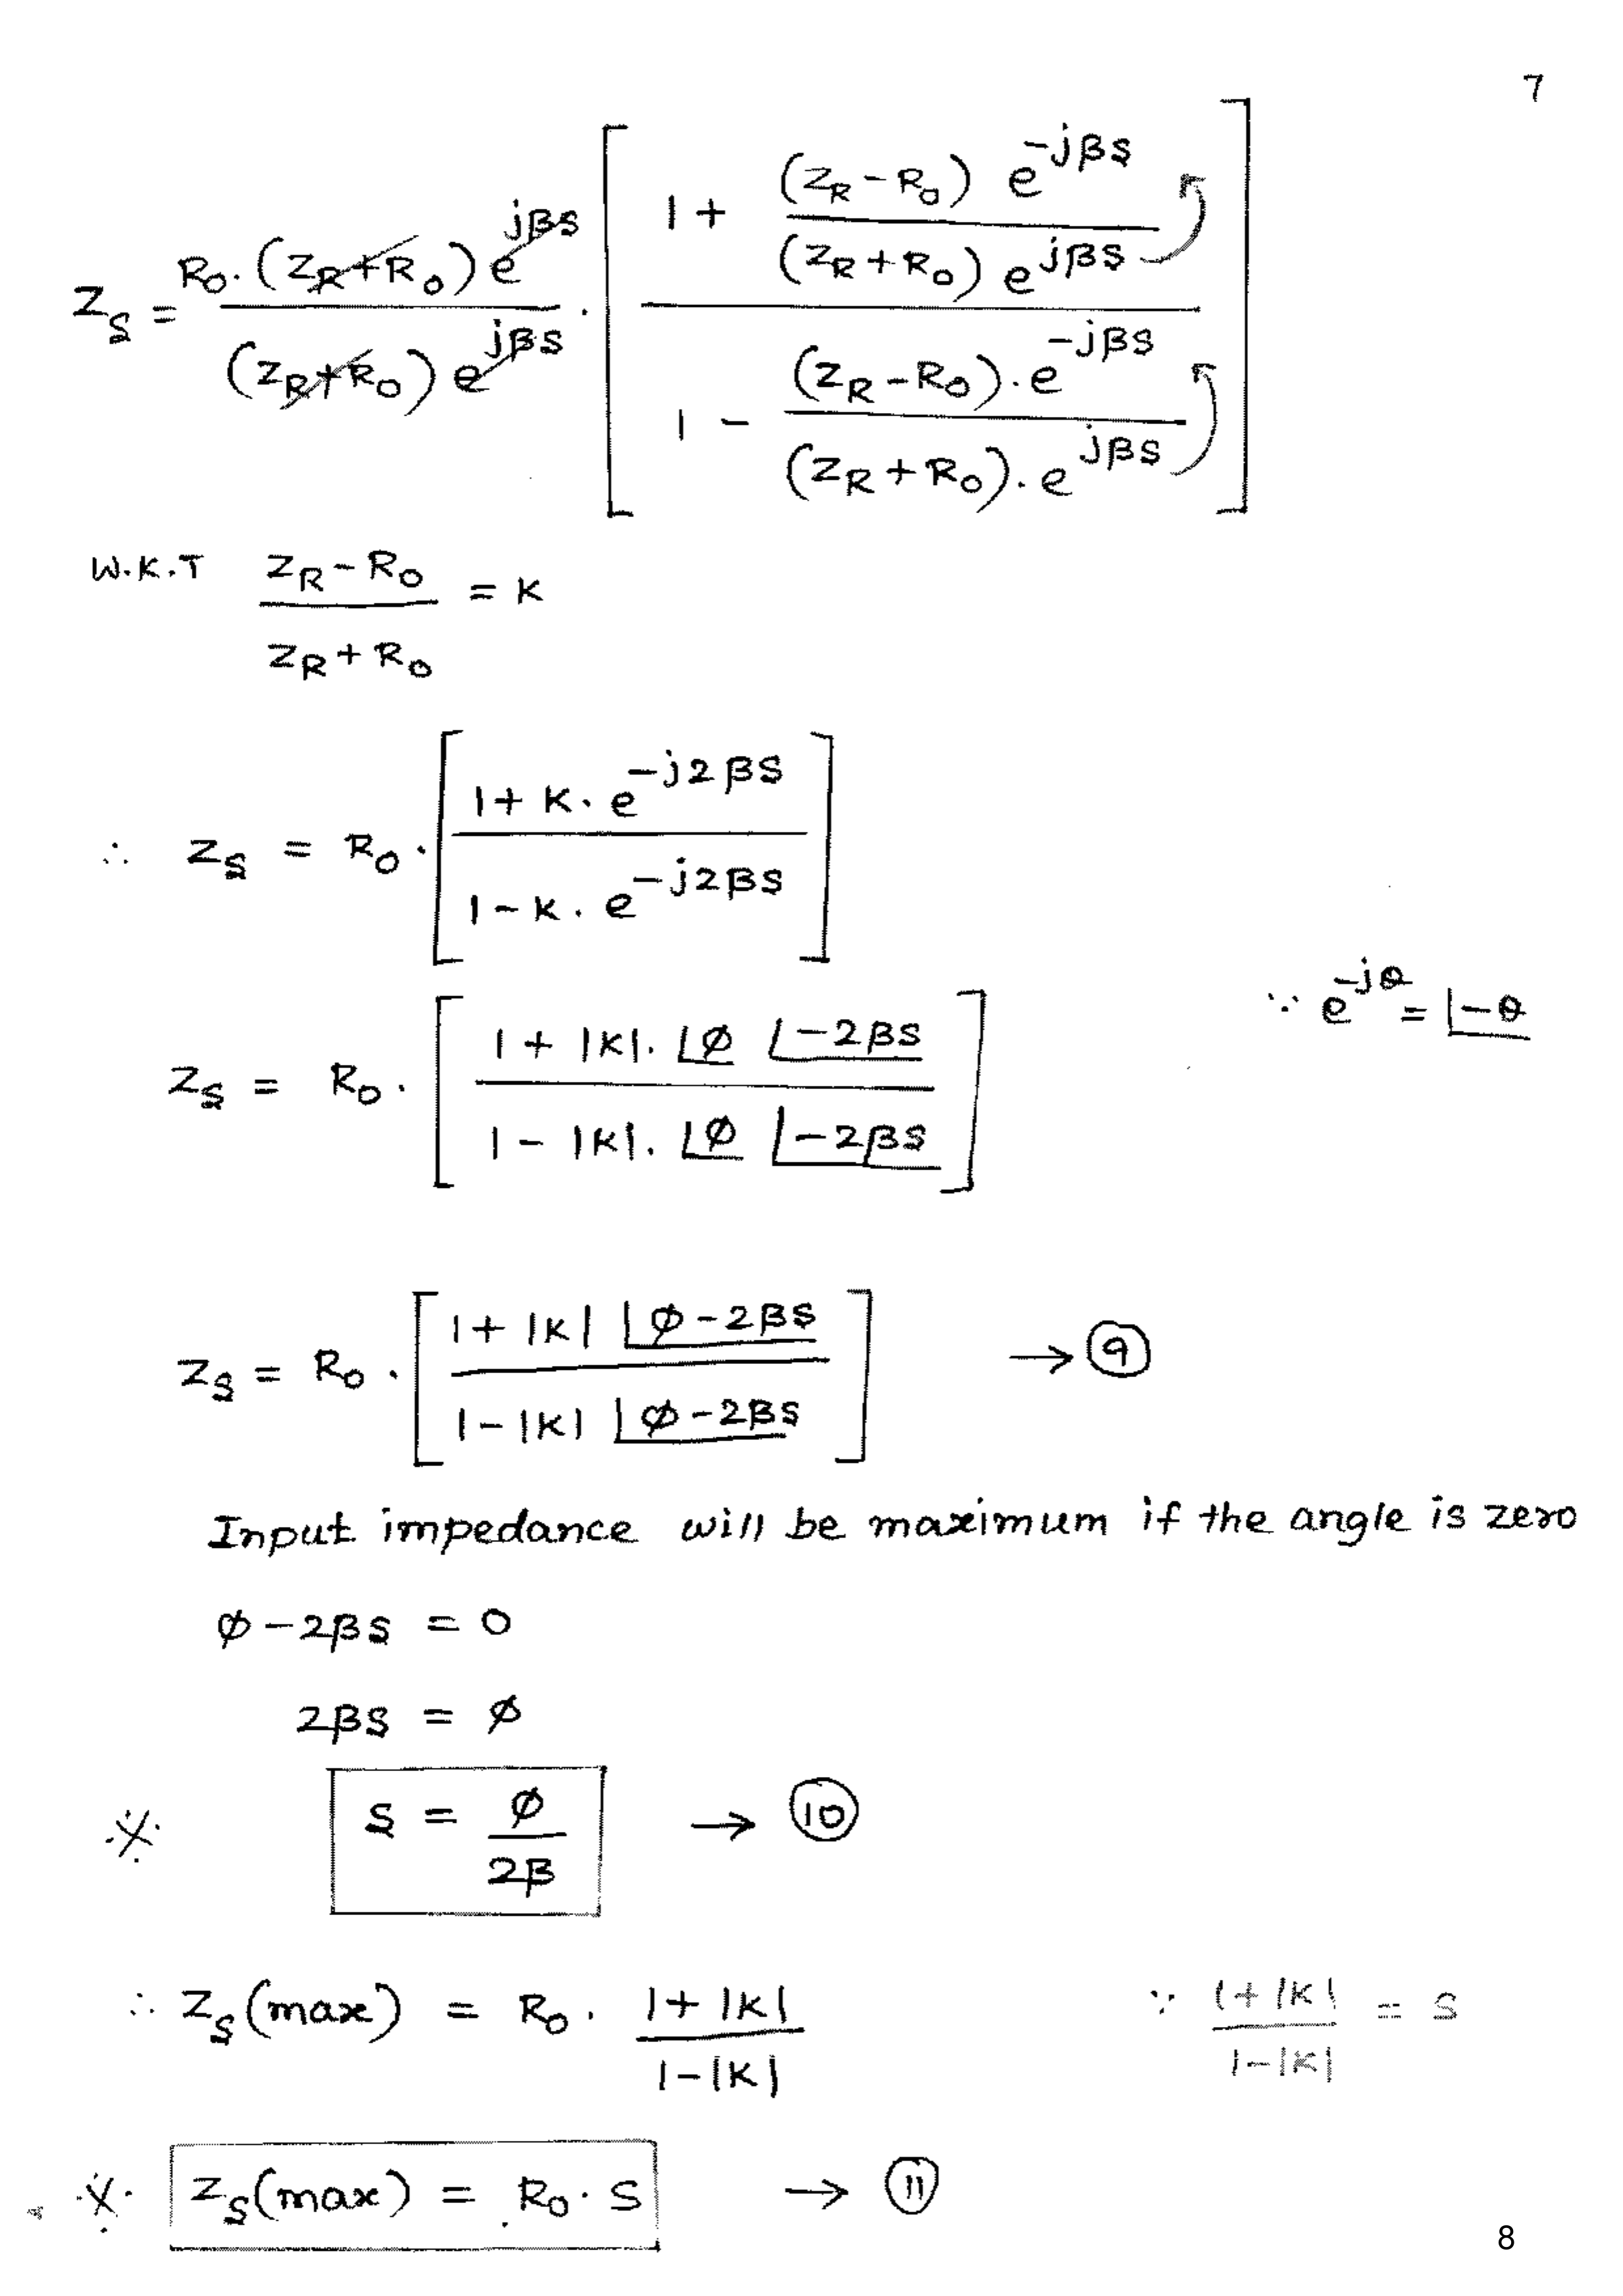 7
Z_S = R_0 · (Z_R + R_0) e^{jβs} / (Z_R + R_0) e^{jβs} · [ 1 + (Z_R - R_0) e^{-jβs} / (Z_R + R_0) e^{jβs} / 1 - (Z_R - R_0) · e^{-jβs} / (Z_R + R_0) · e^{jβs} ]
W.K.T (Z_R - R_0) / (Z_R + R_0) = K
∴ Z_S = R_0 · [ 1 + K · e^{-j2βs} / 1 - K · e^{-j2βs} ]
∵ e^{-jθ} = ∠-θ
Z_S = R_0 · [ 1 + |K| · ∠φ ∠-2βs / 1 - |K| · ∠φ ∠-2βs ]
Z_S = R_0 · [ 1 + |K| ∠φ-2βs / 1 - |K| ∠φ-2βs ] → ⑨
Input impedance will be maximum if the angle is zero
φ - 2βs = 0
2βs = φ
※ s = φ / 2β → ⑩
∴ Z_S(max) = R_0 · 1 + |K| / 1 - |K| ∵ 1 + |K| / 1 - |K| = S
※ Z_S(max) = R_0 · S → ⑪
8